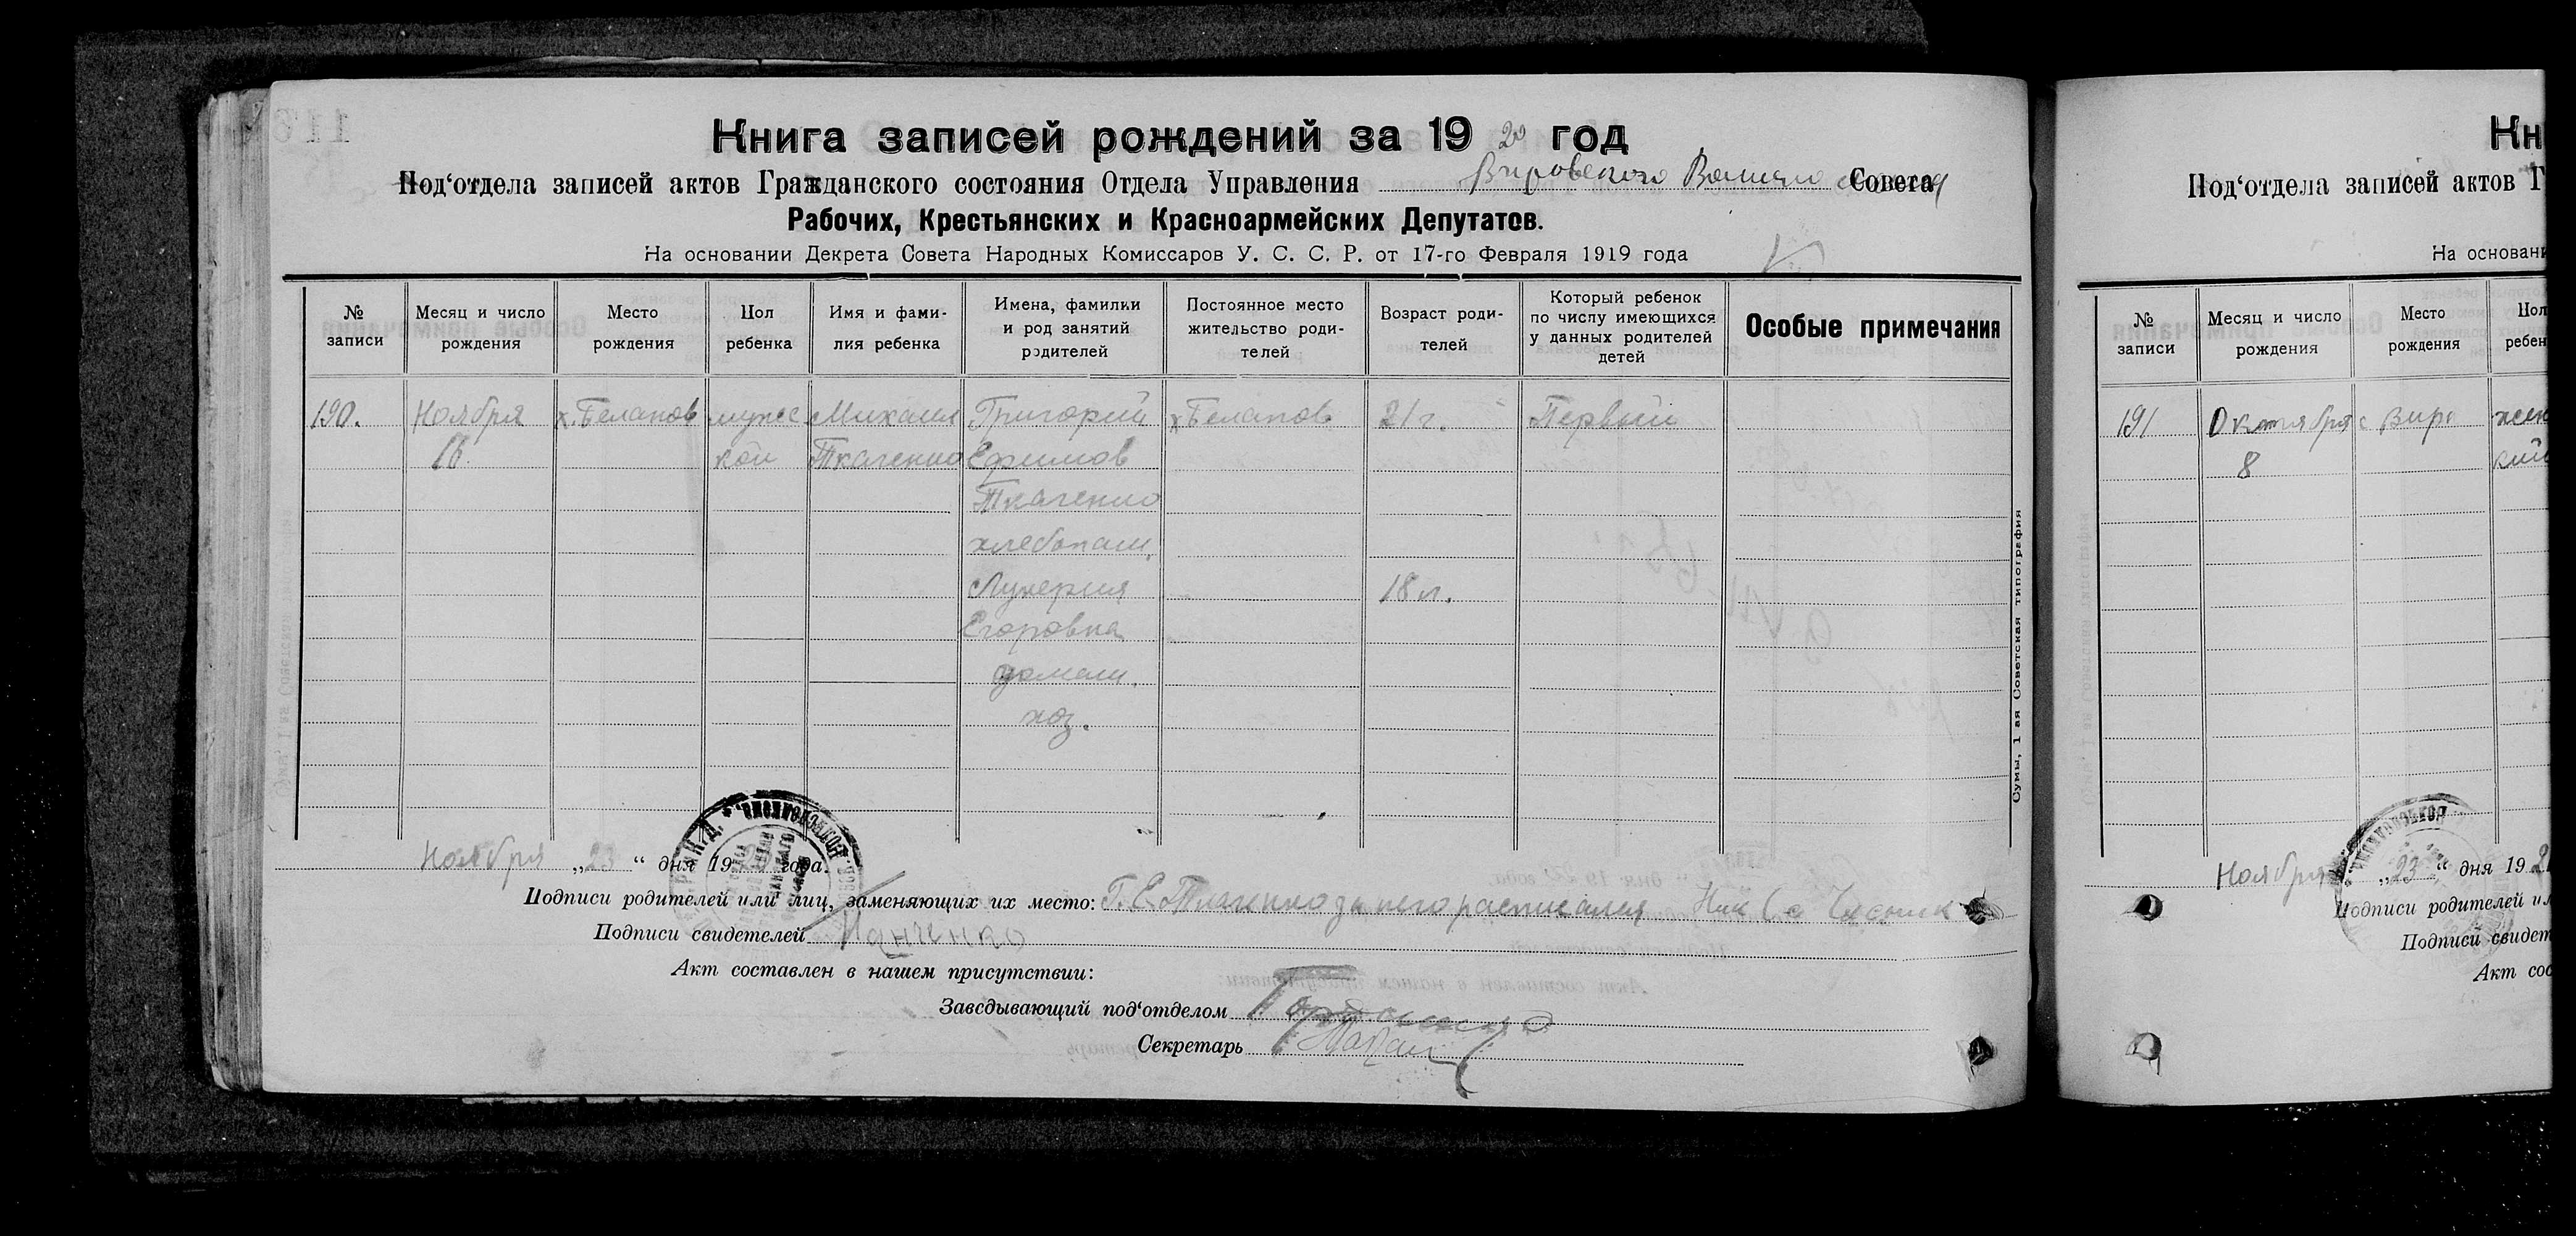 Книга записей рождений за 1920 год
Под'отдела записей актов Гражданского состояния Отдела Управления Вировского Совета
Рабочих, Крестьянских и Красноармейских Депутатов.
На основании Декрета Совета Народных Комиссаров У. С. С. Р. от 17-го Февраля 1919 года
№ записи
Месяц и число рождения
Место рождения
Пол ребенка
Имя и фамилия ребенка
Имена, фамилии и род занятий родителей
Постоянное место жительство родителей
Возраст родителей
Который ребенок по числу имеющихся у данных родителей детей
Особые примечания
190. Ноября х. Беланов мужс Михаил Григорий х Беланов 21 г. Первый
16. кой Ткаченко Ефимов
Ткаченко
хлебопаш.
Лукерия 18 л.
Егоровна
домаш.
хоз.
Ноября „23“ дня 1920 года.
Подписи родителей или лиц, заменяющих их место: Г. Е. Ткаченко за него расписался Ник
Подписи свидетелей
Акт составлен в нашем присутствии:
Заведывающий под'отделом
Секретарь
Сумы, 1-ая Советская типография
Кн
Под'отдела записей актов Г
На основани
№ записи
Месяц и число рождения
Место рождения
Пол ребен
191 Октября с Вири жен
8 кий
Ноября „23“ дня 192
Подписи родителей ил
Подписи свидет
Акт сос